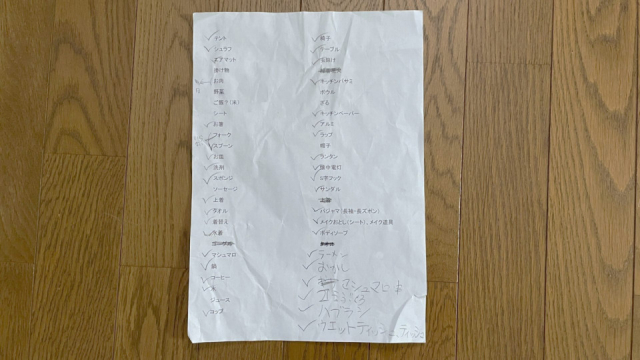 テント
シュラフ
エアマット
漬け物
お弁
野菜
ご飯?(米)
シート
お箸
フォーク
スプーン
お皿
洗剤
スポンジ
ソーセージ
上着
タオル
着替え
水着
マシュマロ
鍋
コーヒー
ジュース
コップ
椅子
テーブル
日除け
キッチンバサミ
ボウル
ざる
キッチンペーパー
アルミ
ラップ
帽子
ランタン
懐中電灯
S字フック
サンダル
パジャマ(長袖・長ズボン)
メイクおとし(シート)、メイク道具
ボディソープ
ラーメン
おかし
マシュマロ
ゴミぶくろ
ハブラシ
ウエットティッシュ